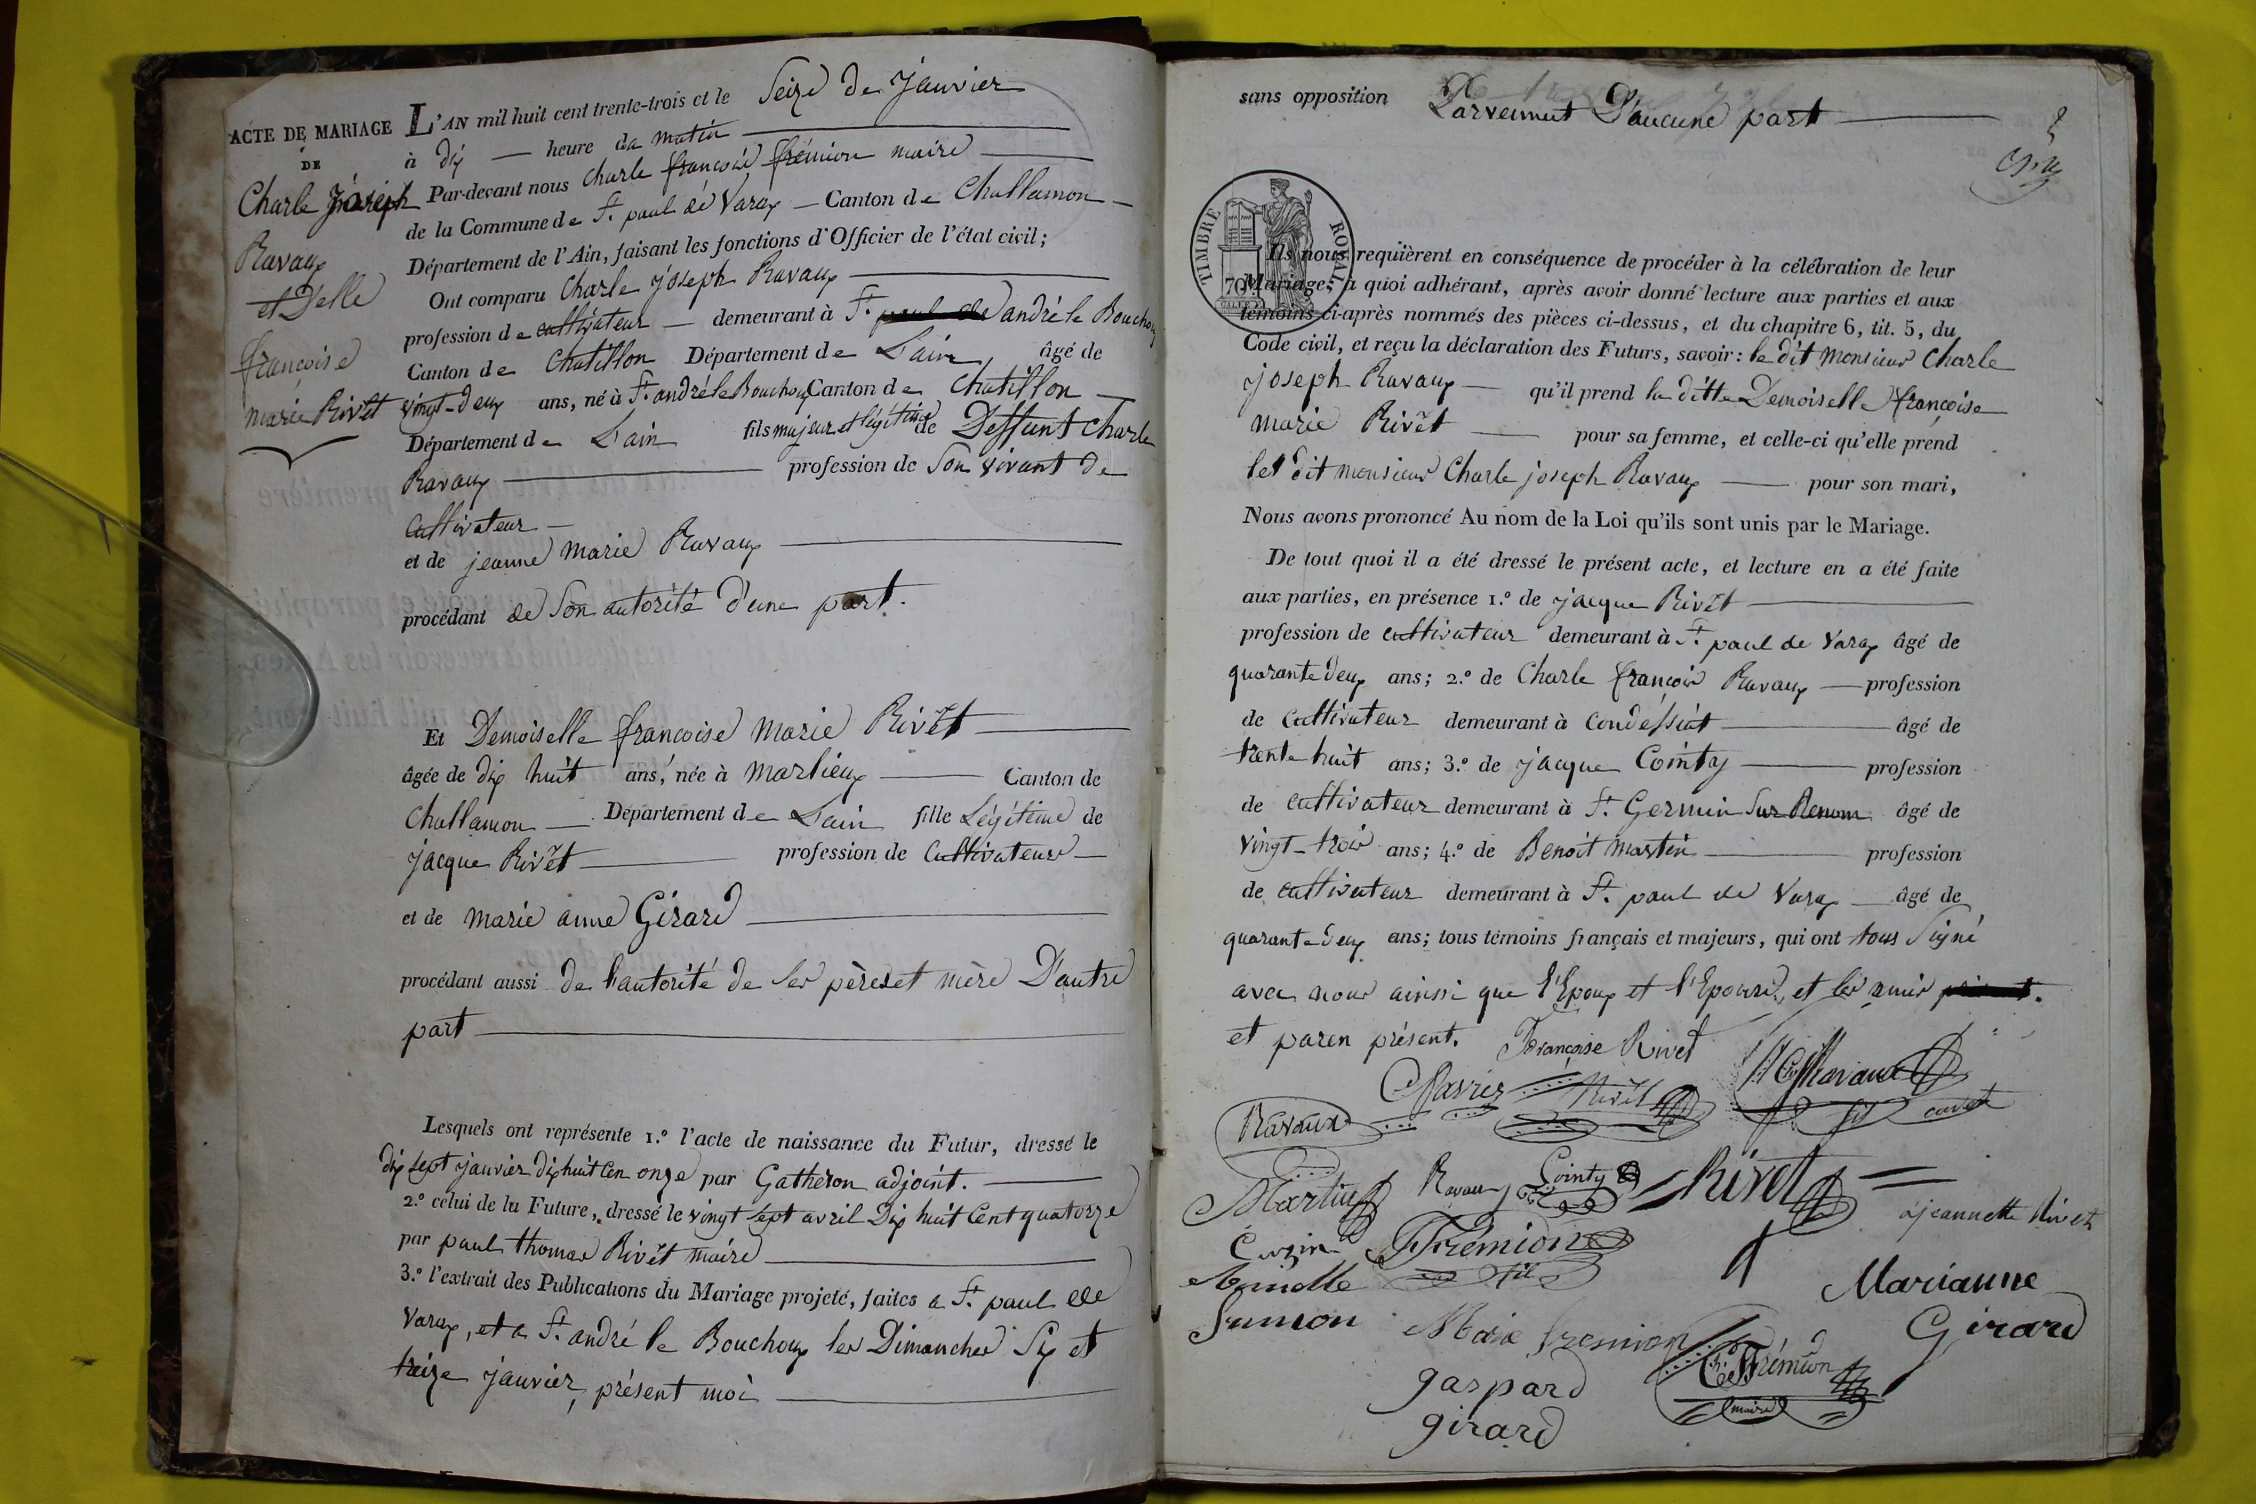 ACTE DE MARIAGE
DE
Charle Joseph
Ravaux
et Delle
françoise
marie Rivet
L'AN mil huit cent trente-trois et le Seize de Janvier
à dix heure du matin
Par-devant nous Charle françois frémion maire
de la Commune de St. paul de Varax Canton de Challamon
Département de l'Ain, faisant les fonctions d'Officier de l'état civil;
Ont comparu Charle joseph Ravaux
profession de cultivateur demeurant à St. paul de andré le Bouchoux
Canton de Chatillon Département de L'ain âgé de
vingt-deux ans, né à St. andré le Bouchoux Canton de Chatillon
Département de L'ain fils majeur et légitime de Deffunt Charle
Ravaux profession de Son vivant de
Cultivateur
et de jeanne marie Ravaux
procédant de Son autorité d'une part.
Et Demoiselle françoise marie Rivet
âgée de dix huit ans, née à marlieux Canton de
Challamon Département de L'ain fille Légitime de
jacque Rivet profession de Cultivateur
et de marie anne Girard
procédant aussi de l'autorité de ses pères et mère D'autre
part
Lesquels ont représente 1.º l'acte de naissance du Futur, dressé le
dix sept janvier dix huit Cen onze par Gatheron adjoint.
2.º celui de la Future, dressé le vingt sept avril Dix huit Cent quatorze
par paul thomas Rivet maire
3.º l'extrait des Publications du Mariage projeté, faites a St. paul de
Varax, et a St. andré le Bouchoux les Dimanches Six et
treize janvier, présent moi
sans opposition Parvennut D'aucune part
2
TIMBRE ROYAL
70
Ils nous requièrent en conséquence de procéder à la célébration de leur
Mariage; à quoi adhérant, après avoir donné lecture aux parties et aux
témoins ci-après nommés des pièces ci-dessus, et du chapitre 6, tit. 5, du
Code civil, et reçu la déclaration des Futurs, savoir: le dit monsieur Charle
joseph Ravaux qu'il prend la ditte Demoiselle françoise
marie Rivet pour sa femme, et celle-ci qu'elle prend
le dit monsieur Charle joseph Ravaux pour son mari,
Nous avons prononcé Au nom de la Loi qu'ils sont unis par le Mariage.
De tout quoi il a été dressé le présent acte, et lecture en a été faite
aux parties, en présence 1.º de jacque Rivet
profession de cultivateur demeurant à St. paul de Varax âgé de
quarante deux ans; 2.º de Charle françois Ravaux profession
de Cultivateur demeurant à condéssiat âgé de
trente huit ans; 3.º de jacque Cointy profession
de cultivateur demeurant à St. Germin Sur Renom âgé de
vingt-trois ans; 4.º de Benoit martin profession
de cultivateur demeurant à St. paul de Varax âgé de
quarante deux ans; tous témoins français et majeurs, qui ont tous Signé
avec nous ainssi que l'Epoux et l'Epouse, et les amis
et paren présent. Françoise Rivet
Ravaux
Rivet
Ravaux
Martin
Ravaux
Cointy
Rivet
jeannette Rivet
Frémion
fils
Marianne
Girard
Marie fremion
gaspard
girard
Ch. Frémion
maire